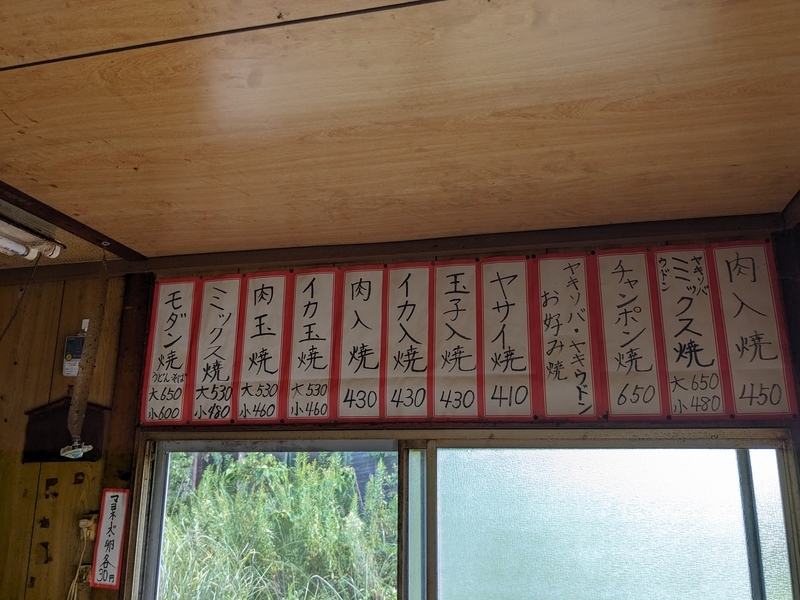 肉入焼
450
ヤキソバ
ウドン
ミックス焼
大650
小480
チャンポン焼
650
ヤキソバ・ヤキウドン
お好み焼
ヤサイ焼
410
玉子入焼
430
イカ入焼
430
肉入焼
430
イカ玉焼
大530
小460
肉玉焼
大530
小460
ミックス焼
大530
小480
モダン焼
うどんそば
大650
小600
マヨネ
卵各
30円